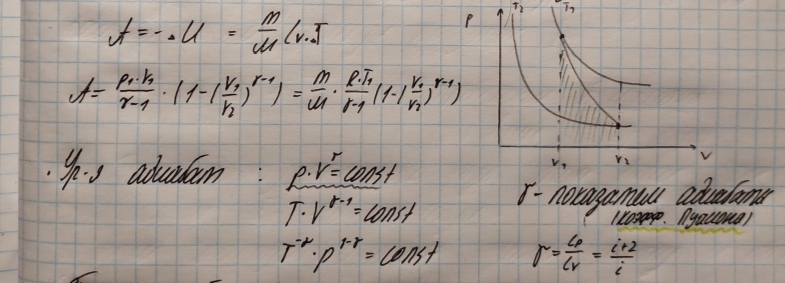 A = - . U = m/M Cv . T
A = p₁·V₁/γ-1 · (1-(V₁/V₂)^γ-1) = m/M · R·T₁/γ-1 (1-(V₁/V₂)^γ-1)
P T₂ T₁
V₁ V₂ V
. Ур-я адиабат : p·V^γ = const
T·V^γ-1 = const
T^-γ · p^γ-1 = const
γ - показатель адиабаты
(коэфф. Пуасона)
γ = Cp/Cv = i+2/i